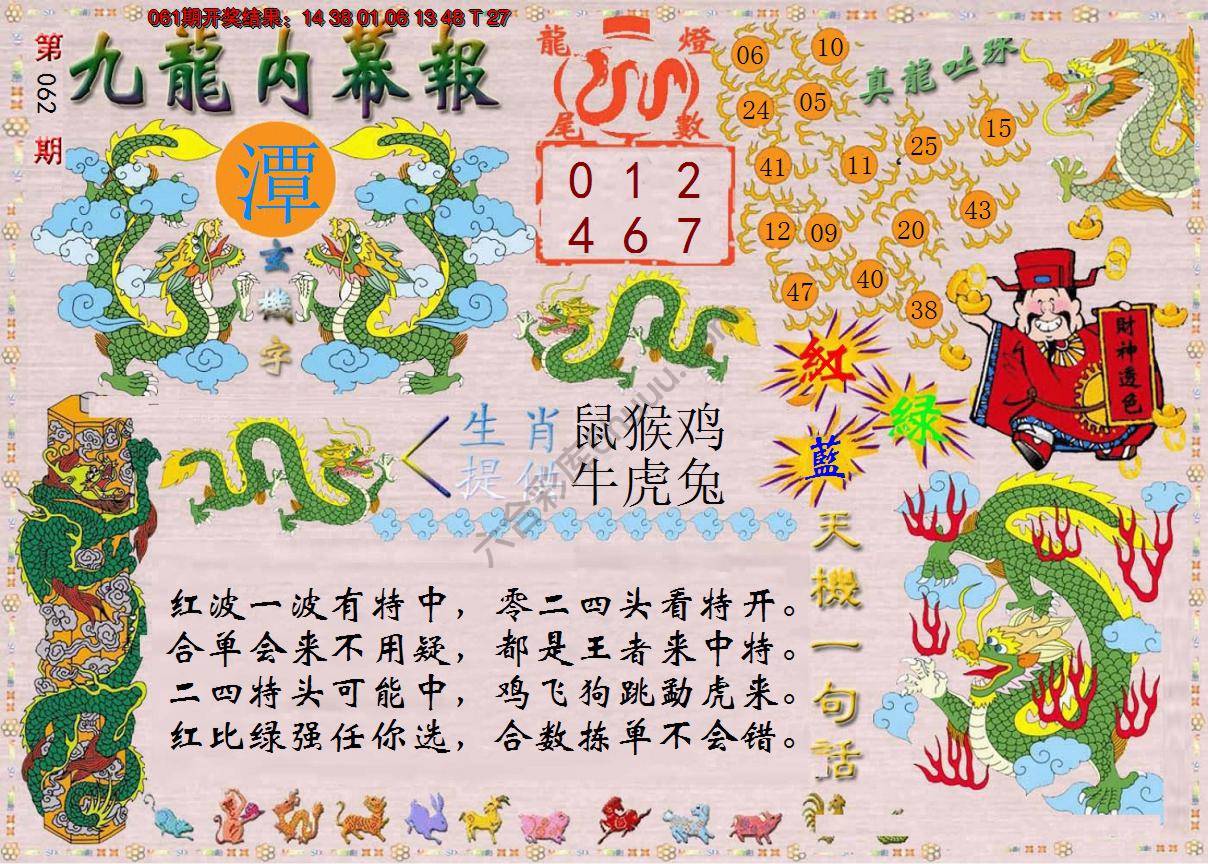 061期开奖结果：14 38 01 06 13 48 T 27
第062期
九龍内幕報
潭
玄機字
龍燈
尾數
0 1 2
4 6 7
真龍吐珠
06 10
24 05
41 11 25 15
12 09 20 43
47 40 38
財神透色
紅
綠
藍
生肖 鼠猴鸡
提供 牛虎兔
六合彩库
天機一句話
红波一波有特中，零二四头看特开。
合单会来不用疑，都是王者来中特。
二四特头可能中，鸡飞狗跳勐虎来。
红比绿强任你选，合数拣单不会错。